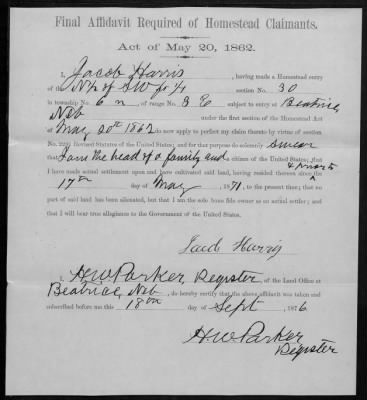 Final Affidavit Required of Homestead Claimants.
Act of May 20, 1862.
I, Jacob Harris, having made a Homestead entry
of the N½ of SW fr ¼ section No. 30
in township No. 6 n of range No. 3 E subject to entry at Beatrice,
Neb under the first section of the Homestead Act
of May 20th 1862 do now apply to perfect my claim thereto by virtue of section
No. 2291 Revised Statutes of the United States; and for that purpose do solemnly swear
I am the head of a family and a citizen of the United States; that
I have made actual settlement upon and have cultivated said land, having resided thereon since the
17th day of May 1871, to the present time; that no
part of said land has been alienated, but that I am the sole bona fide owner as an actual settler; and
that I will bear true allegiance to the Government of the United States.
Jacob
I, H.W. Parker, Register, of the Land Office at
Beatrice, Neb, do hereby certify that the above affidavit was taken and
subscribed before me this 18th day of Sept, 1876
H.W. Parker
Register